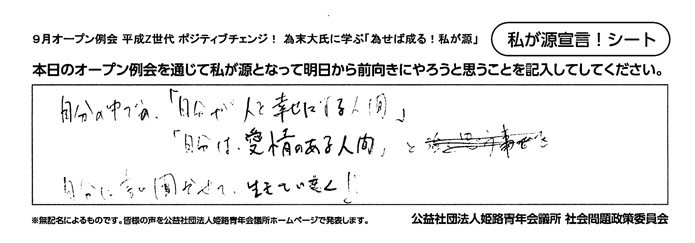 9月オープン例会 平成Z世代 ポジティブチェンジ! 為末大氏に学ぶ「為せば成る!私が源」
私が源宣言!シート
本日のオープン例会を通じて私が源となって明日から前向きにやろうと思うことを記入してしてください。
自分の中での、「自分が人を幸せにする人間」
「自分は、愛情のある人間」と
自分に言い聞かせて、生きていく!
※無記名によるものです。皆様の声を公益社団法人姫路青年会議所ホームページで発表します。
公益社団法人姫路青年会議所 社会問題政策委員会